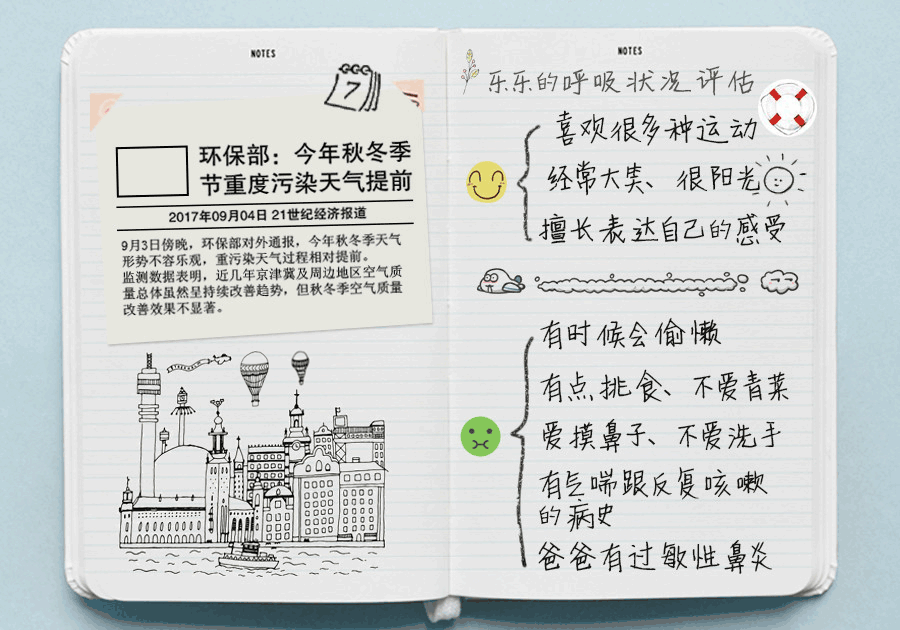 NOTES
7
环保部：今年秋冬季
节重度污染天气提前
2017年09月04日 21世纪经济报道
9月3日傍晚，环保部对外通报，今年秋冬季天气
形势不容乐观，重污染天气过程相对提前。
监测数据表明，近几年京津冀及周边地区空气质
量总体虽然呈持续改善趋势，但秋冬季空气质量
改善效果不显著。
NOTES
乐乐的呼吸状况评估
喜欢很多种运动
经常大笑、很阳光
擅长表达自己的感受
有时候会偷懒
有点挑食、不爱青菜
爱摸鼻子、不爱洗手
有气喘跟反复咳嗽
的病史
爸爸有过敏性鼻炎